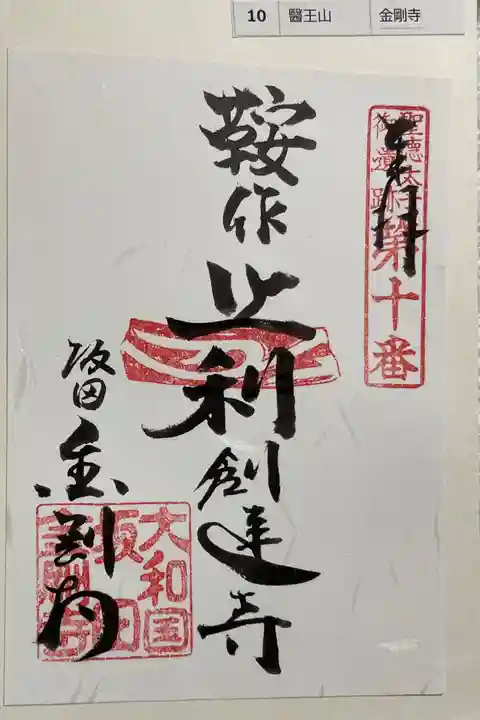 10 醫王山 金剛寺
奉拝
聖徳太子
御遺跡
第十番
鞍作
止利
創建寺
坂田
金剛寺
大和国
坂田
金剛寺